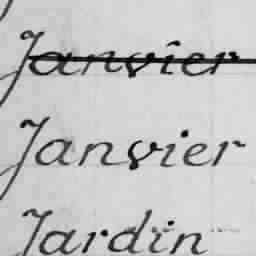 Janvier
Janvier
Jardin